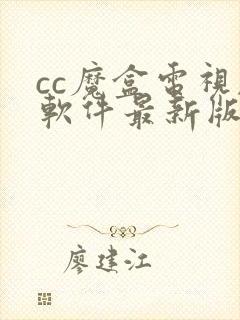 cc魔盒雷視
軟件最新版
廖建江